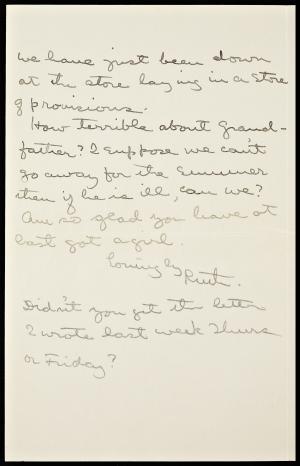 we have just been down
at the store laying in a store
of provisions.
How terrible about Grand-
father? I suppose we can't
go away for the summer
then if he is ill, can we?
Am so glad you have at
last got a girl.
Lovingly
Ruth.
Didn't you get the letter
I wrote last week Thurs
or Friday?